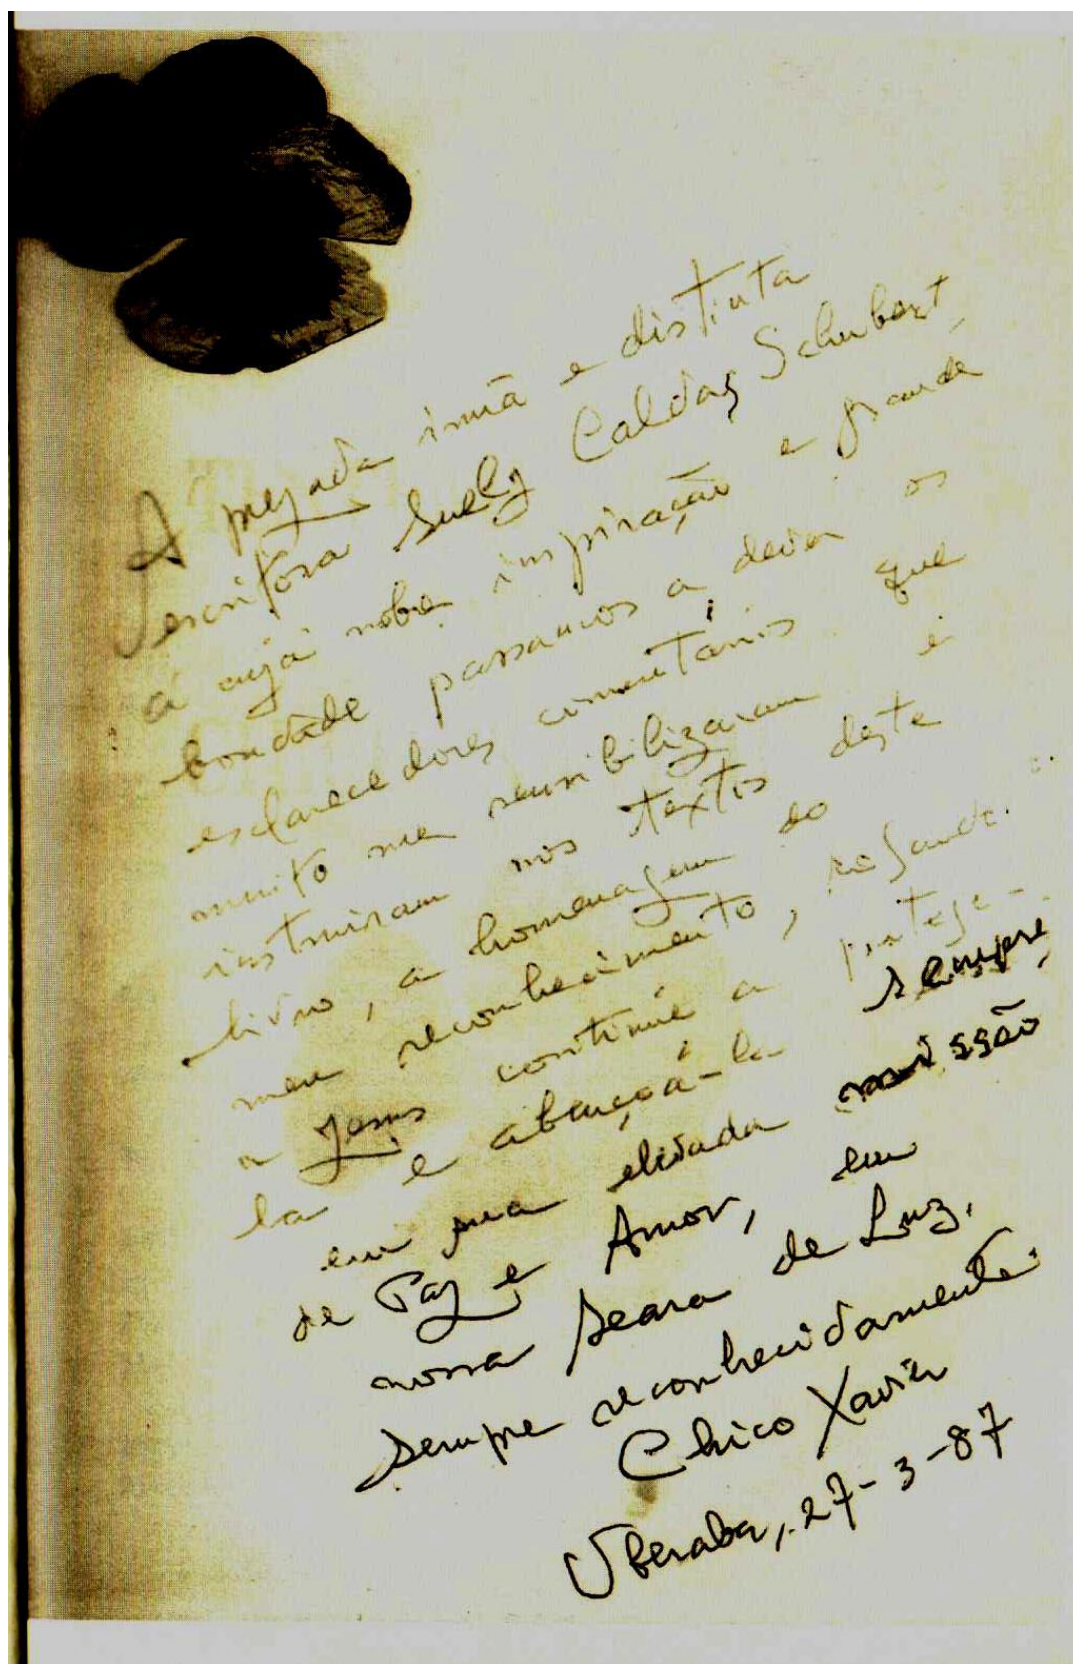 A prezada irmã e distinta
escritora Suely Caldas Schubert,
a cuja nobre inspiração e grande
bondade passamos a dever os
esclarecedores comentários que
muito me sensibilizaram e
instruiram nos textos deste
livro, a homenagem do
meu reconhecimento, rogando
a Jesus continue a protege-
la e abençoá-la sempre,
em sua elevada missão
de Paz e Amor, em
nossa Seara de Luz.
Sempre reconhecidamente
Chico Xavier
Uberaba, 27-3-87